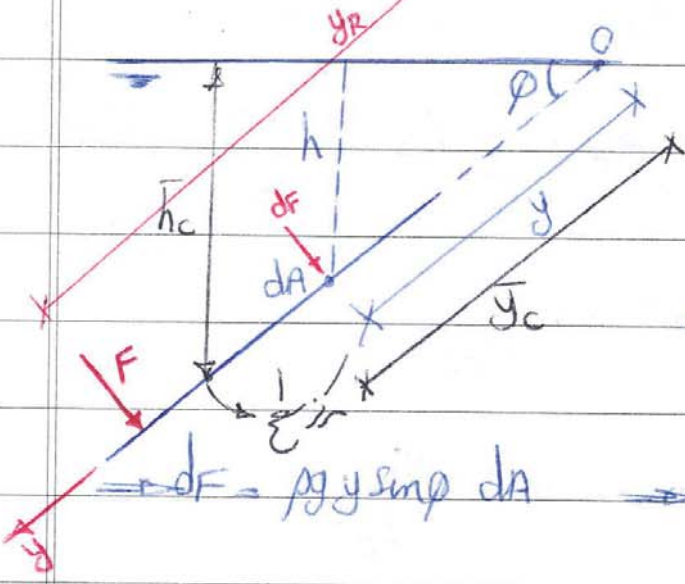 y_R
O
φ
h
h̄_c
dF
dA
y
ȳ_c
F
⇒ dF = ρg y sinφ dA ⇒
y